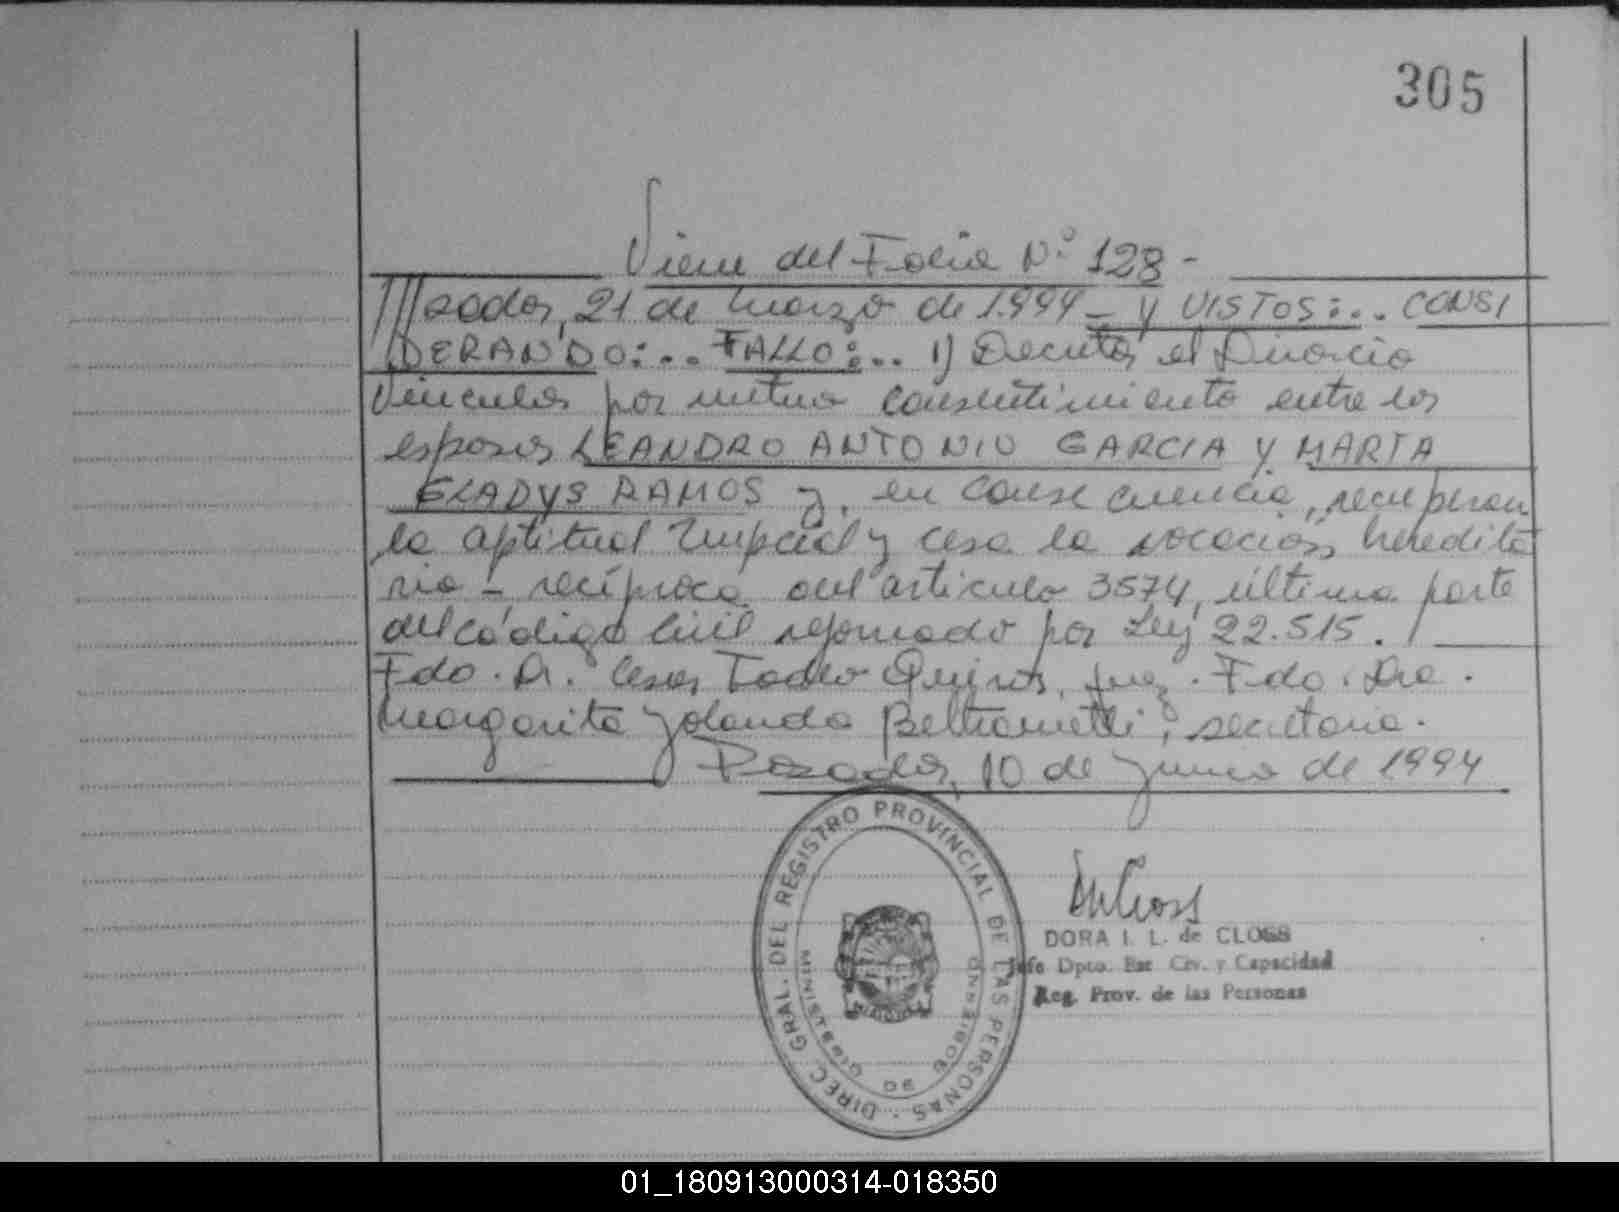 305
Viene del Folio N° 128 -
///sadas, 21 de marzo de 1.994 - y VISTOS:... CONSI
DERANDO:... FALLO:... 1) Decretar el Divorcio
Vincular por mutuo consentimiento entre los
esposos LEANDRO ANTONIO GARCIA Y MARTA
GLADYS RAMOS y, en consecuencia, recuperan
la aptitud nupcial y cesa la vocación heredita
ria - recíproca del artículo 3574, última parte
del código Civil reformado por Ley 22.515. /
Fdo. Dr. Cesar Tadeo Quiros, Juez. Fdo. Dra.
Margarita Yolanda Beltrametti, secretaria.
Posadas, 10 de Junio de 1994
DIREC. GRAL. DEL REGISTRO PROVINCIAL DE LAS PERSONAS
MINISTERIO DE GOBIERNO
DORA I. L. de CLOSS
Jefe Dpto. Est. Civ. y Capacidad
Reg. Prov. de las Personas
01_180913000314-018350